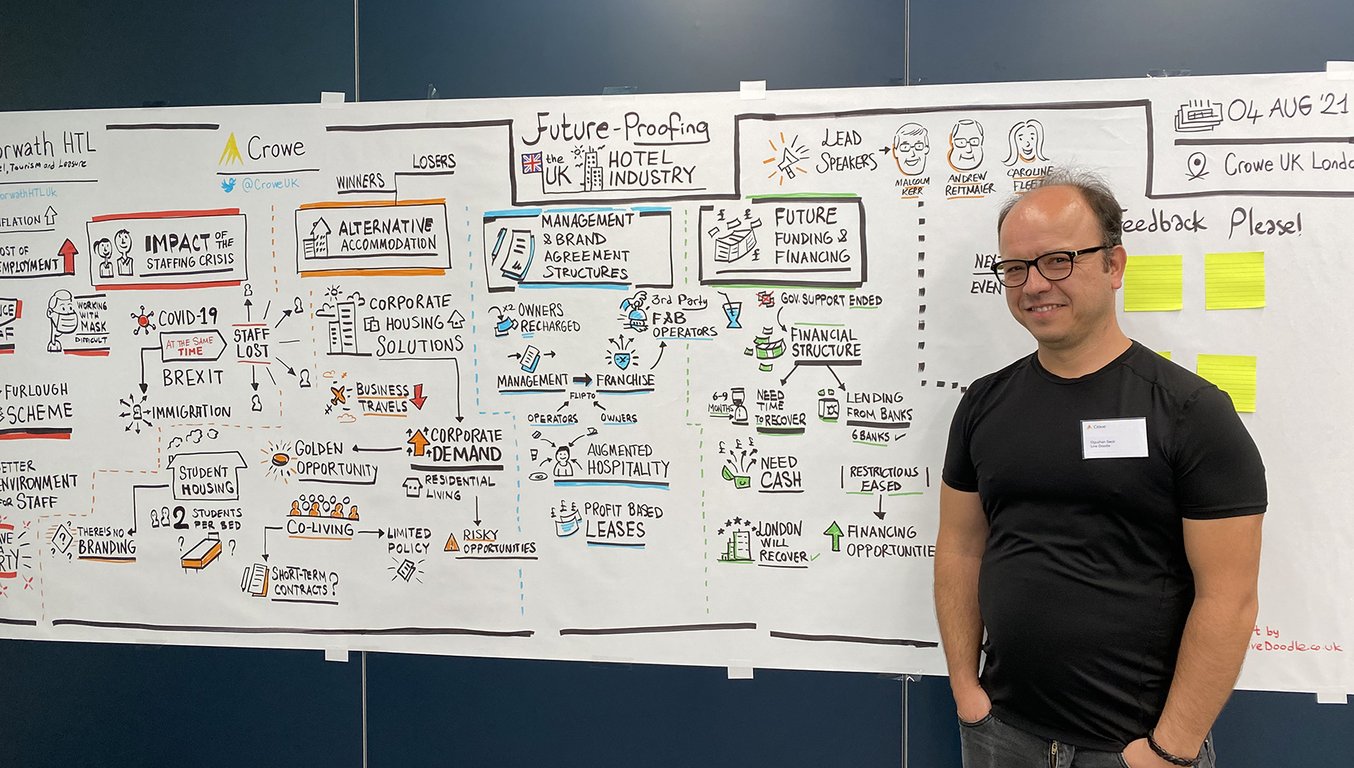 orwath HTL
el, Tourism and Leisure
orwathHTLUk
Crowe
@CroweUK
Future-Proofing
the UK
HOTEL
INDUSTRY
LEAD
SPEAKERS
MALCOLM
KERR
ANDREW
REITMAIER
CAROLINE
FLEE
04 AUG '21
CROWE UK LONDO
FLATION
OST OF
EMPLOYMENT
IMPACT OF THE
STAFFING CRISIS
WORKING
WITH MASK
DIFFICULT
COVID-19
AT THE SAME
TIME
BREXIT
IMMIGRATION
STAFF
LOST
FURLOUGH
SCHEME
ETTER
ENVIRONMENT
FOR STAFF
WINNERS
LOSERS
ALTERNATIVE
ACCOMMODATION
CORPORATE
HOUSING
SOLUTIONS
BUSINESS
TRAVELS
CORPORATE
DEMAND
GOLDEN
OPPORTUNITY
RESIDENTIAL
LIVING
STUDENT
HOUSING
2 STUDENTS
PER BED
? ?
THERE'S NO
BRANDING
CO-LIVING
LIMITED
POLICY
RISKY
OPPORTUNITIES
SHORT-TERM
CONTRACTS?
MANAGEMENT
& BRAND
AGREEMENT
STRUCTURES
x2 OWNERS
RECHARGED
3rd Party
F&B
OPERATORS
MANAGEMENT
FLIP TO
FRANCHISE
OPERATORS
OWNERS
AUGMENTED
HOSPITALITY
£ £ £
PROFIT BASED
LEASES
FUTURE
FUNDING &
FINANCING
GOV. SUPPORT ENDED
FINANCIAL
STRUCTURE
6-9
MONTHS
NEED
TIME
TO RECOVER
LENDING
FROM BANKS
6 BANKS ✓
NEED
CASH
RESTRICTIONS
EASED
LONDON
WILL
RECOVER ✓
FINANCING
OPPORTUNITIE
NE
EVEN
eedback Please!
Crowe
Live Doodle
t by
iveDoodle.co.uk